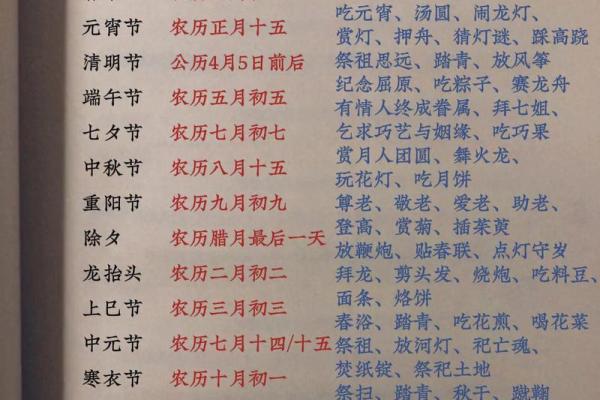 元宵节 农历正月十五
吃元宵、汤圆、闹龙灯、
赏灯、押舟、猜灯谜、踩高跷
清明节 公历4月5日前后
祭祖思远、踏青、放风筝
端午节 农历五月初五
纪念屈原、吃粽子、赛龙舟
七夕节 农历七月初七
有情人终成眷属、拜七姐、
乞求巧艺与姻缘、吃巧果
中秋节 农历八月十五
赏月人团圆、舞火龙、
玩花灯、吃月饼
重阳节 农历九月初九
尊老、敬老、爱老、助老、
登高、赏菊、插茱萸
除夕 农历腊月最后一天
放鞭炮、贴春联、点灯守岁
龙抬头 农历二月初二
拜龙、剪头发、烧炮、吃料豆、
面条、烙饼
上巳节 农历三月初三
春浴、踏青、吃花煎、喝花菜
中元节 农历七月十四/十五
祭祖、放河灯、祀亡魂、
焚纸锭、祭祀土地
寒衣节 农历十月初一
祭扫、踏青、秋千、蹴鞠